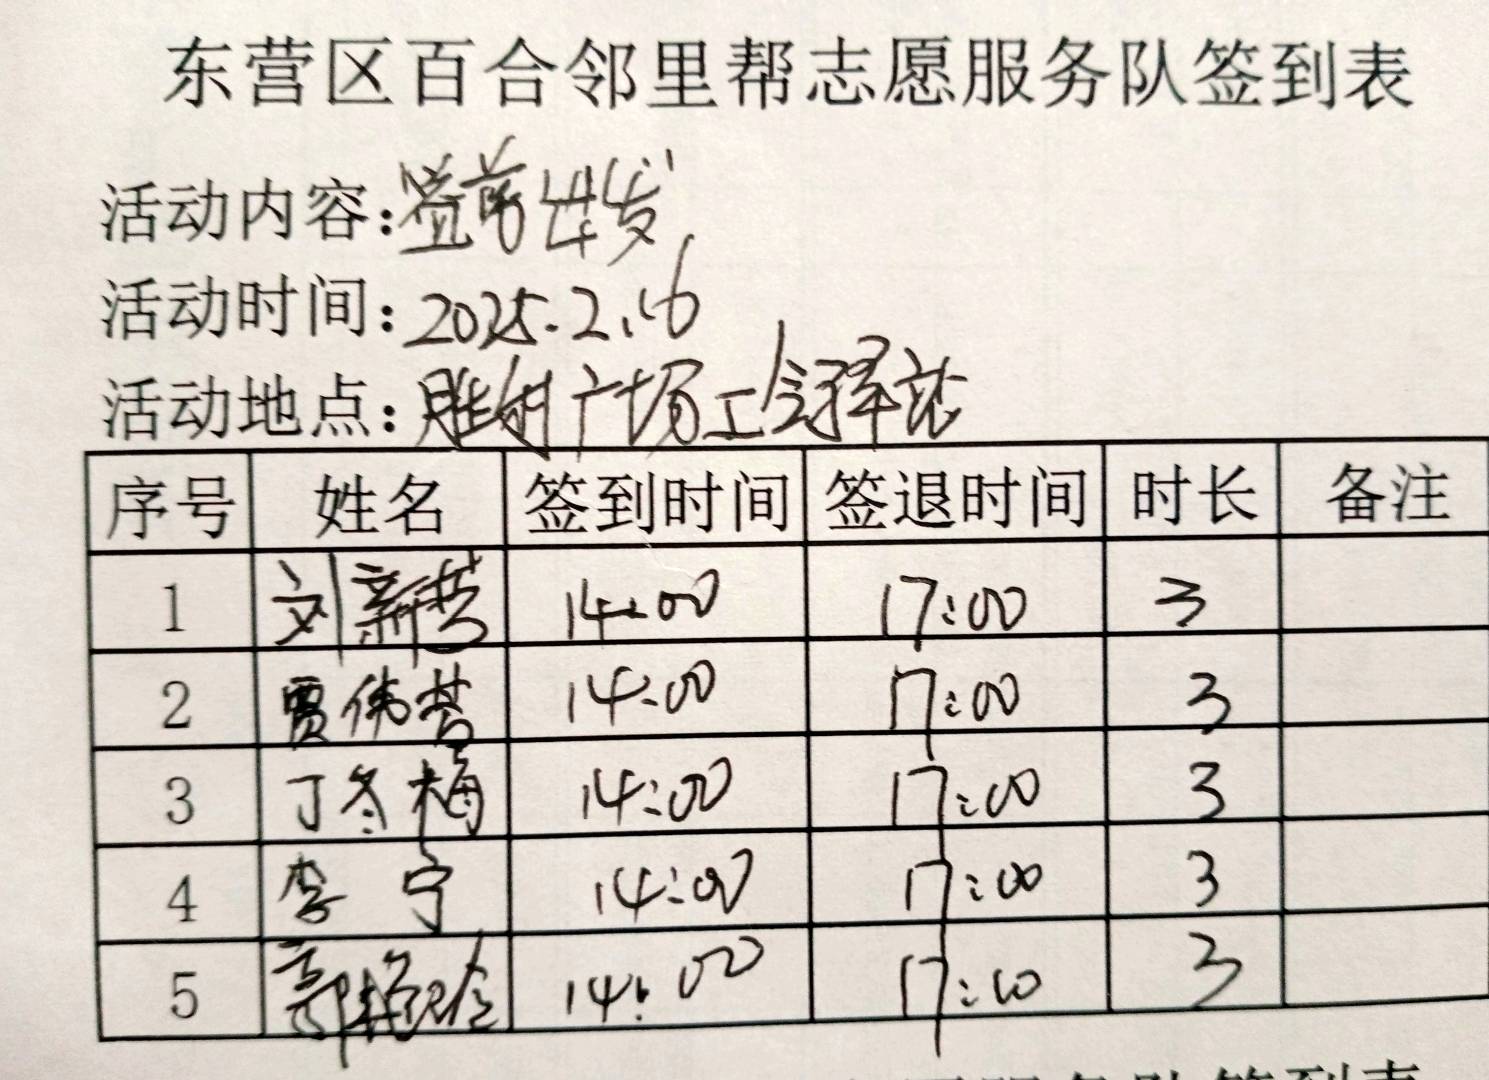 东营区百合邻里帮志愿服务队签到表
活动内容:益前出发
活动时间:2025.2.16
活动地点:胜利广场工会驿站
序号 姓名 签到时间 签退时间 时长 备注
1 刘新芳 14:00 17:00 3
2 贾伟芳 14:00 17:00 3
3 丁冬梅 14:00 17:00 3
4 李宁 14:00 17:00 3
5 14:00 17:00 3
服务队签到表